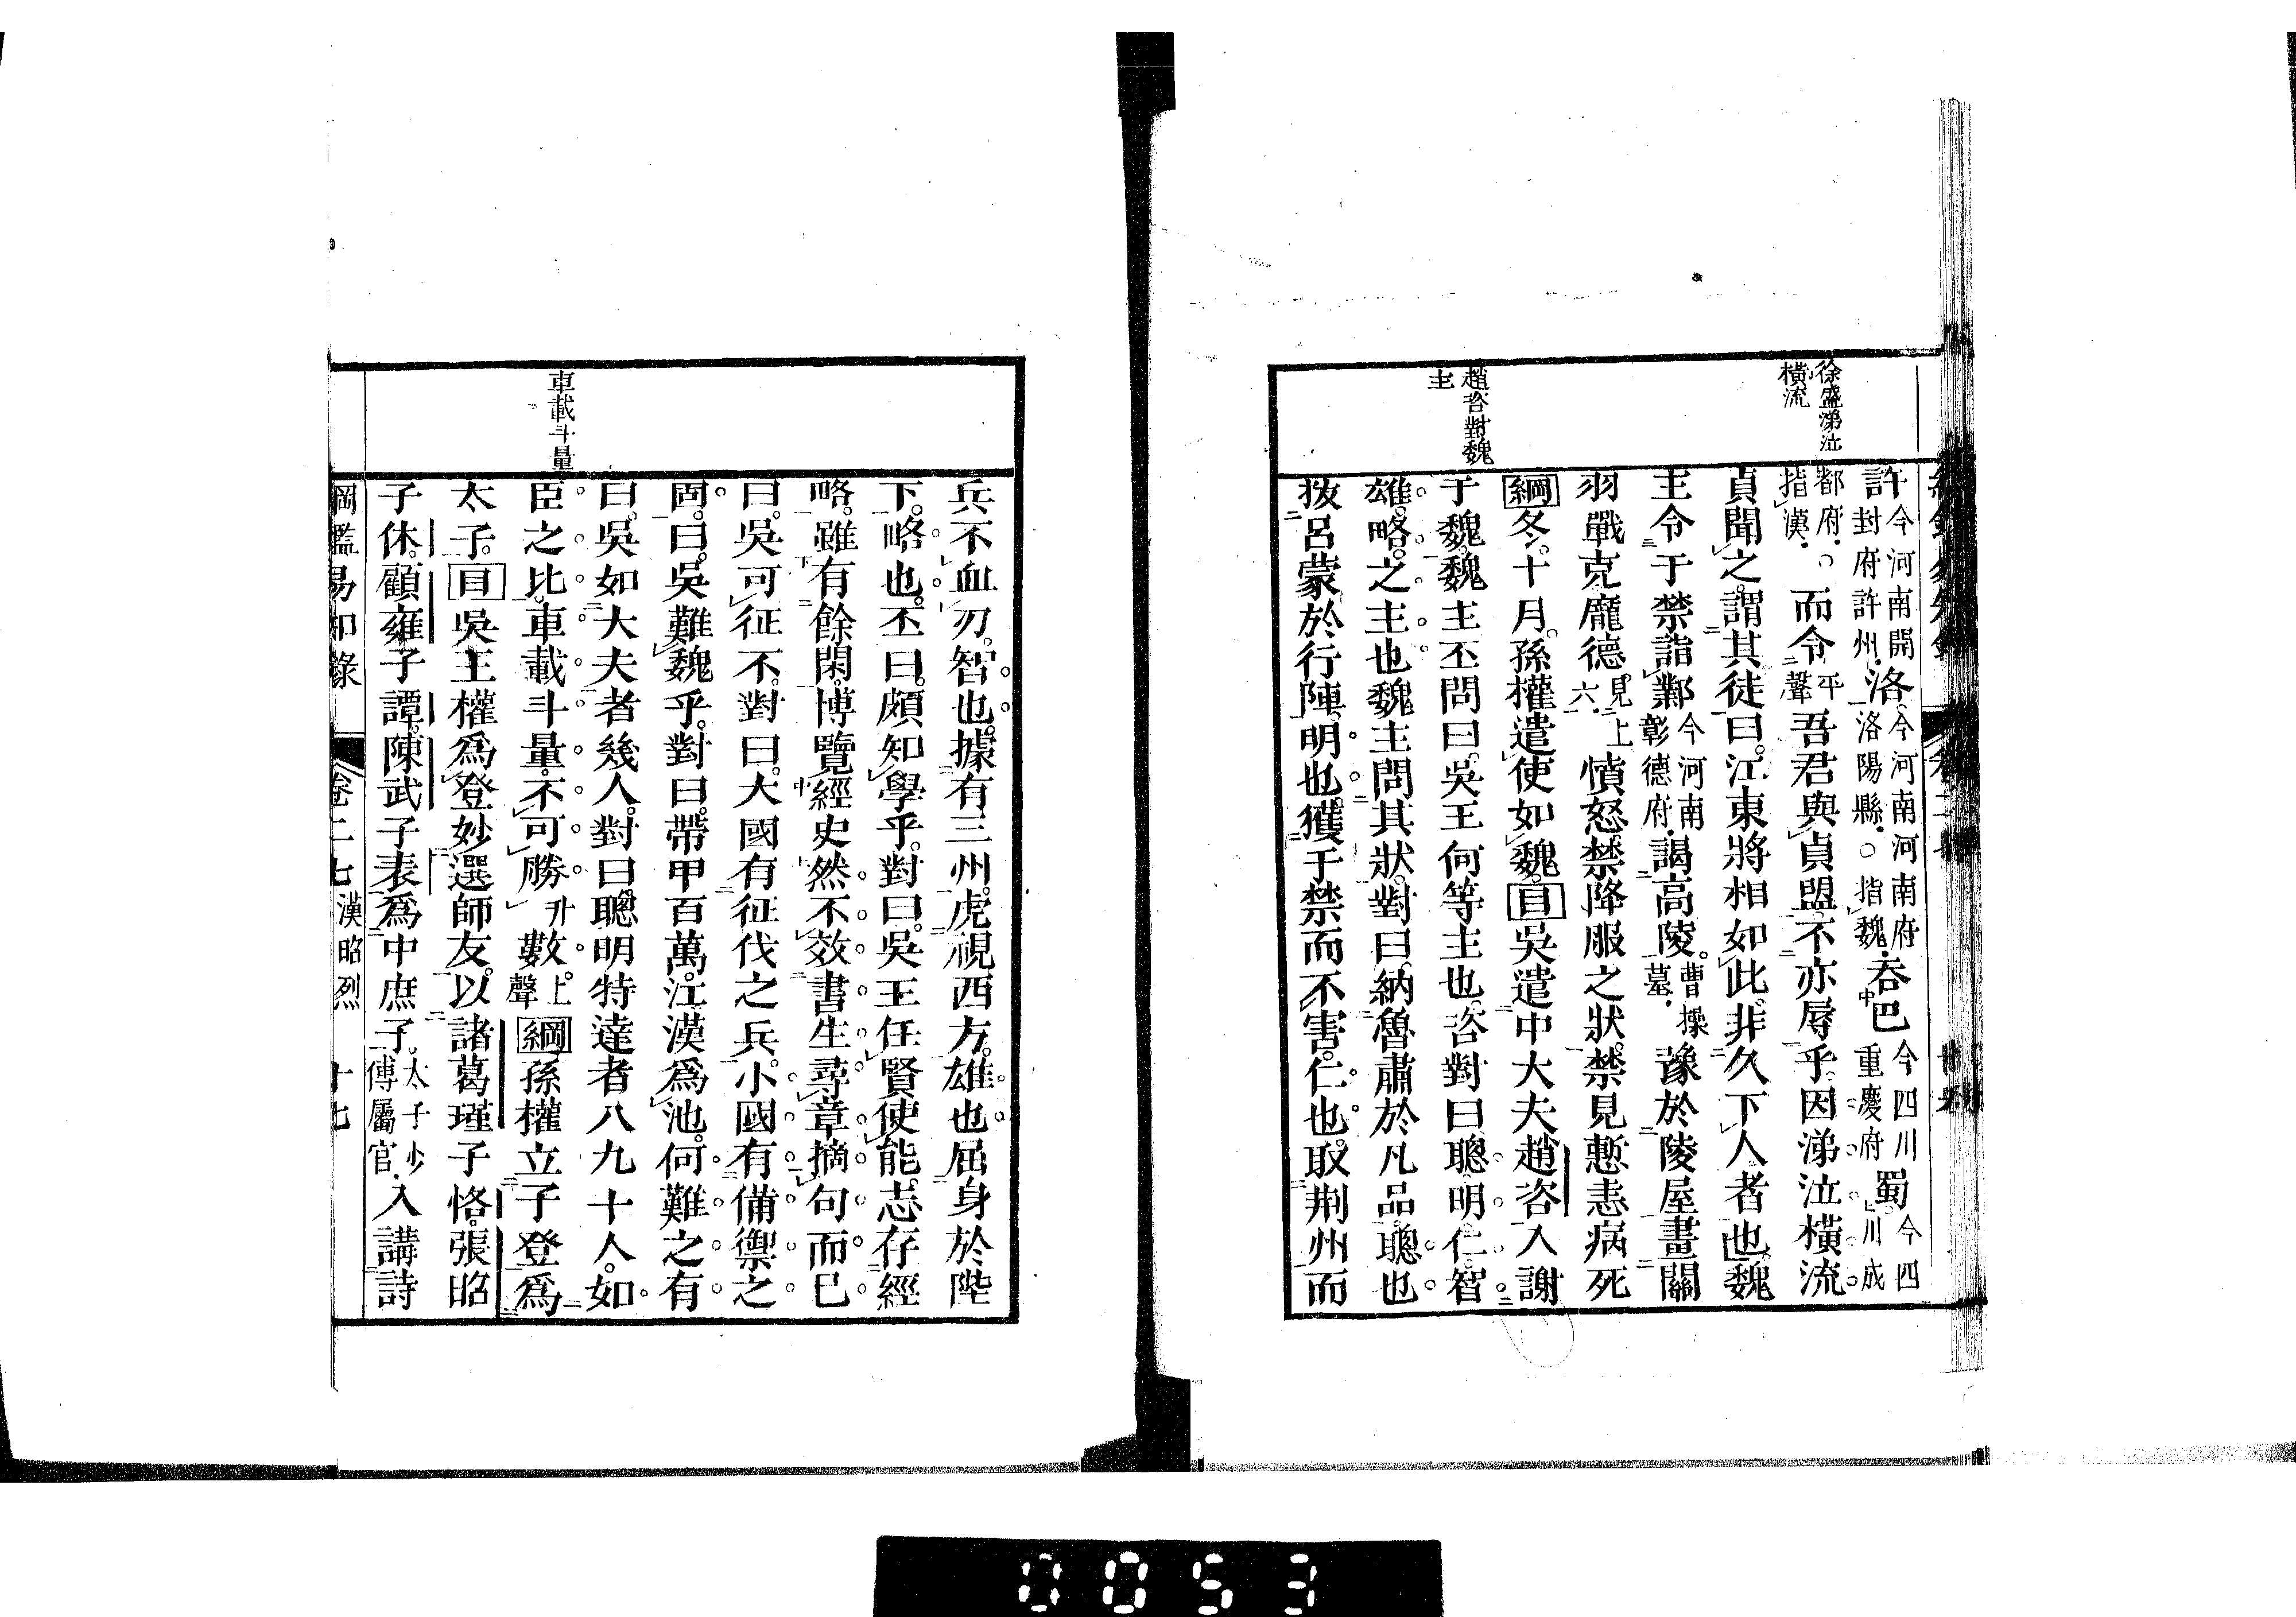 徐盛涕泣
橫流
趙咨對魏
主
許今河南開封府許州.洛今河南河南府洛陽縣.○指魏.吞巴今四川重慶府蜀今四川成
都府.○指漢.而令平聲吾君與貞盟不亦辱乎因涕泣橫流
貞聞之謂其徒曰江東將相如此非久下人者也魏
主令于禁詣鄴今河南彰德府.謁高陵曹操墓.豫於陵屋畫關
羽戰克龐德見上六憤怒禁降服之狀禁見慙恚病死
綱冬十月孫權遣使如魏目吳遣中大夫趙咨入謝
于魏魏主丕問曰吳王何等主也咨對曰聰明仁智
雄略之主也魏主問其狀對曰納魯肅於凡品聰也
拔呂蒙於行陣明也獲于禁而不害仁也取荆州而
車載斗量
兵不血刃智也據有三州虎視西方雄也屈身於陛
下略也丕曰頗知學乎對曰吳王任賢使能志存經
略雖有餘閑博覽經史然不效書生尋章摘句而已
曰吳可征不對曰大國有征伐之兵小國有備禦之
固曰吳難魏乎對曰帶甲百萬江漢爲池何難之有
曰吳如大夫者幾人對曰聰明特達者八九十人如
臣之比車載斗量不可勝升數上聲綱孫權立子登爲
太子目吳王權爲登妙選師友以諸葛瑾子恪張昭
子休顧雍子譚陳武子表爲中庶子太子少傅屬官.入講詩
綱鑑易知錄 卷二七 漢昭烈 十七